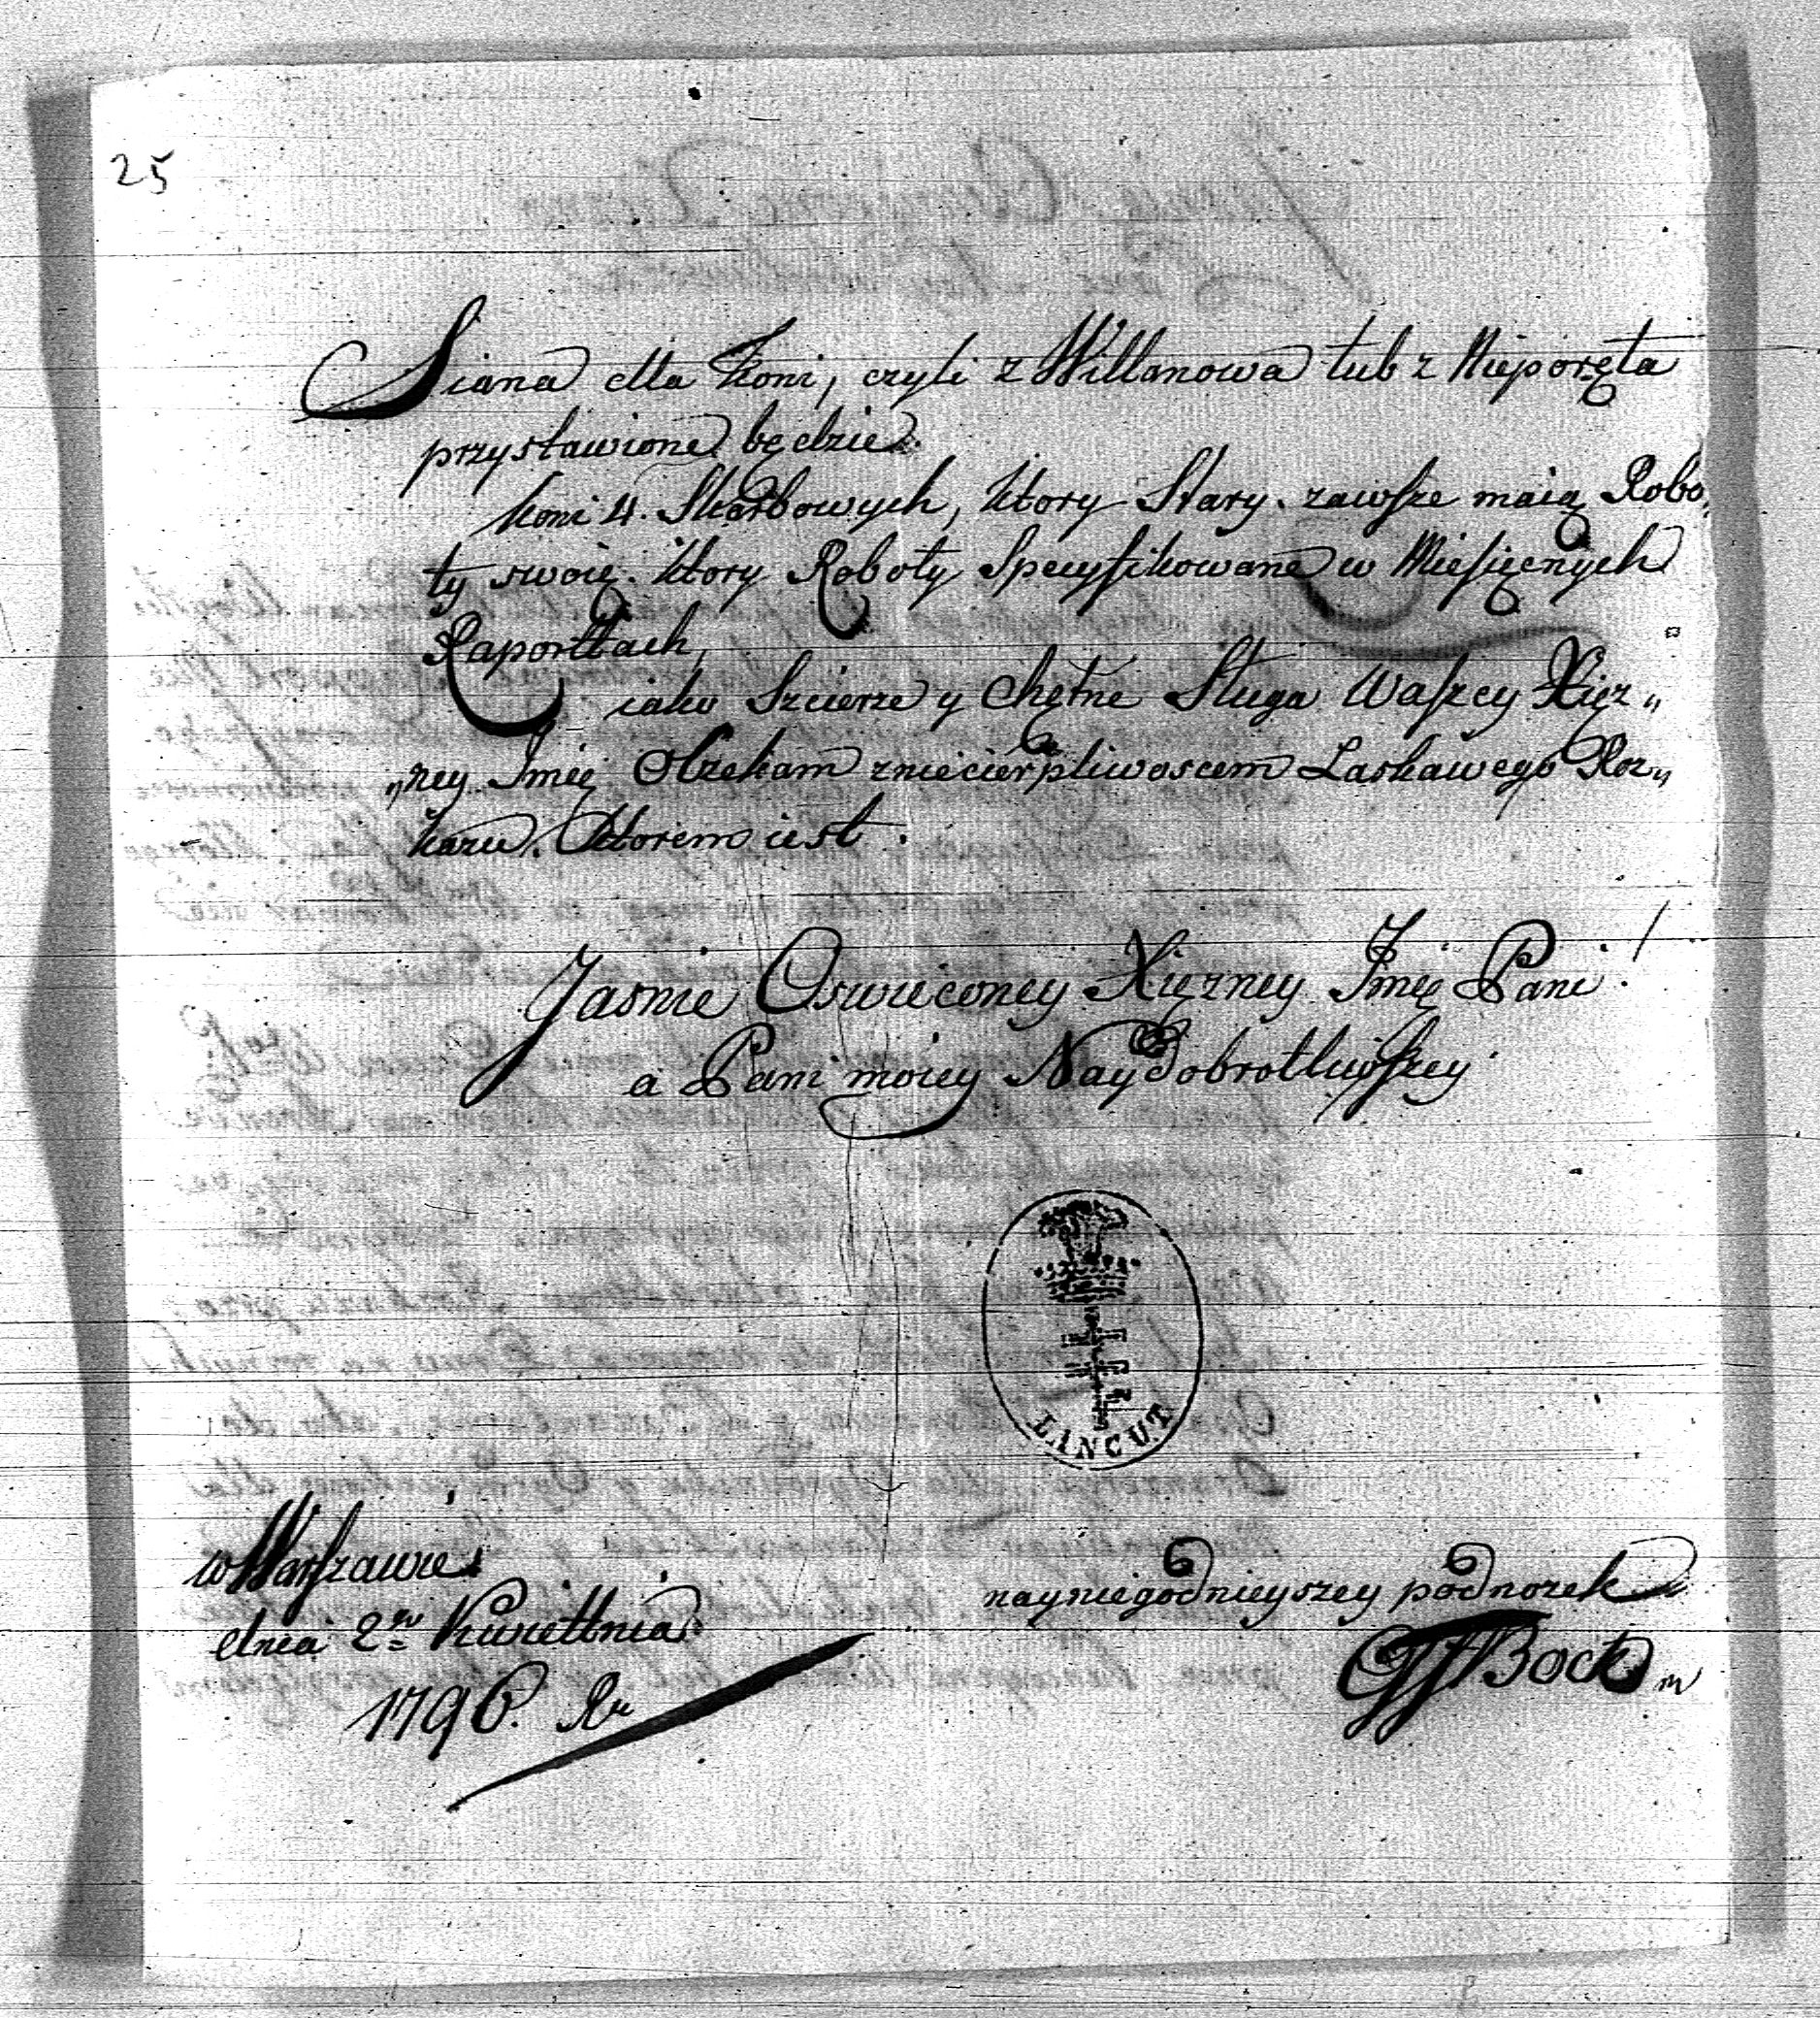 25
Siana dla Koni, czyli z Willanowa lub z Nieporęta
przystawione będzie.
Koni 4. Skarbowych, ktory Stary. zawsze maią Robo„
ty swoię. ktory Roboty Specyfikowane w Miesięcnych
Raporttach,
iako Szcierze y Chętne Sługa Waszey Xięz„
„ney Jmię Oczekam zniecierpliwoscem Laskawego Roz„
kazu. Ktorem iest.
Jasnie Oswieconey Xięzney Jmię Pani!
a Pani moiey Naydobrotliwszey
LANCUT
w Warszawie
dnia 2n Kwiettnia
1796. Ru
nayniegodnieyszey podnozek
Bock